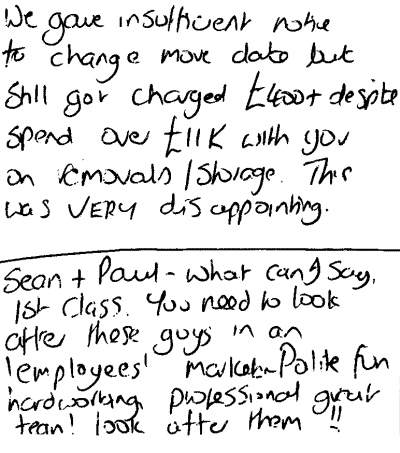 We gave insufficient notice
to change move date but
Still got charged £400+ despite
spend over £11K with you
on removals/Storage. This
was VERY disappointing.
Sean + Paul - what can I say,
1st Class. You need to look
after these guys in an
'employees' market - Polite fun
hardworking professional great
team! look after them !!